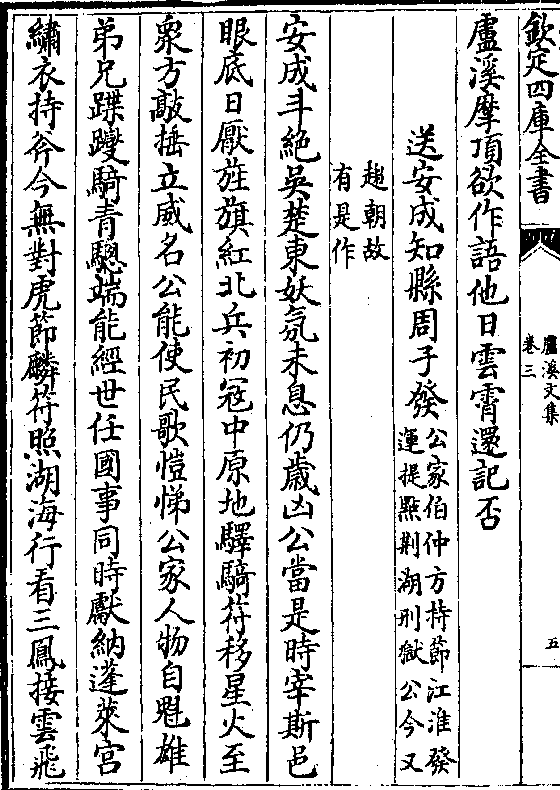 欽定四庫全書
盧溪文集
卷三
五
盧溪摩頂欲作語他日雲霄還記否
送安成知縣周子發公家伯仲方持節江淮發
運提㸃荆湖刑獄公今又
趙朝故
有是作
安成斗絶吳楚東妖氛未息仍歲凶公當是時宰斯邑
眼底日厭旌旗紅北兵初宼中原地驛騎符移星火至
衆方敲搖立威名公能使民歌愷悌公家人物自魁雄
弟兄蹀躞騎青驄端能經世任國事同時獻納蓬萊宮
繡衣持斧今無對虎節麟符照湖海行看三鳳接雲飛